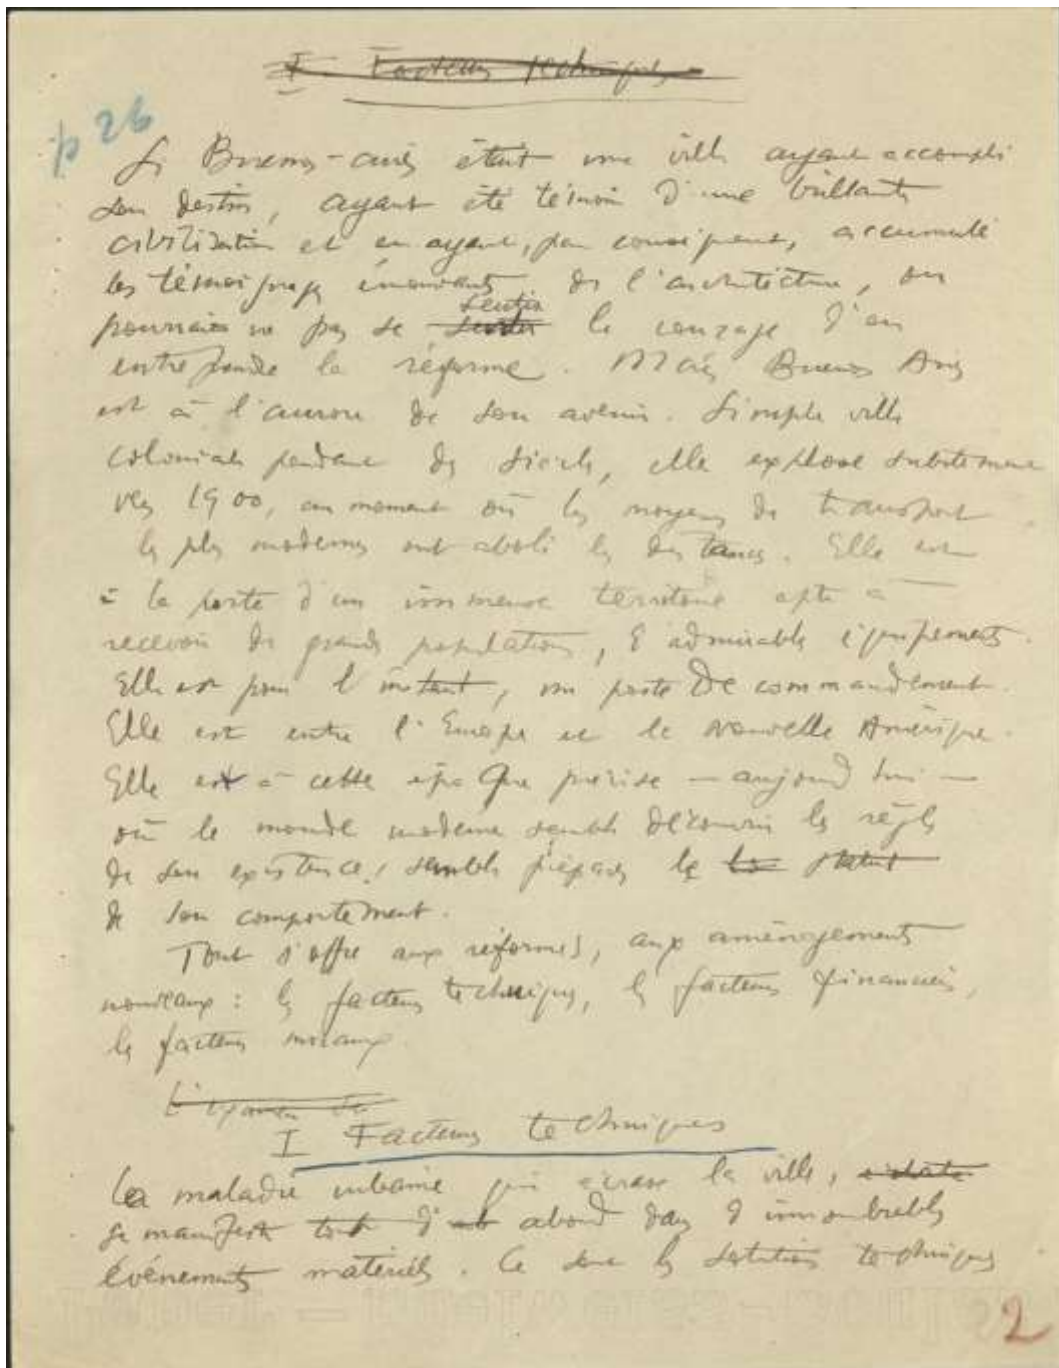 I. Facteurs techniques
p 26
Si Buenos-aires était une ville ayant accompli
son destin, ayant été témoin d'une brillante
civilisation et en ayant, par conséquent, accumulé
les témoignages émouvants de l'architecture, on
pourrait ne pas se
sentir
sentir le courage d'en
entreprendre la réforme. Mais Buenos Aires
est à l'aurore de son avenir. Simple ville
coloniale pendant des siècles, elle explose subitement
vers 1900, au moment où les moyens de transport
les plus modernes ont aboli les distances. Elle est
à la porte d'un immense territoire apte à
recevoir de grandes populations, d'admirables équipements.
Elle est pour l'instant, un poste de commandement.
Elle est entre l'Europe et la nouvelle Amérique.
Elle est à cette époque précise — aujourd'hui —
où le monde moderne semble découvrir les règles
de son existence, semble préparer le statut
de son comportement.
Tout s'offre aux réformes, aux aménagements
nouveaux : les facteurs techniques, les facteurs financiers,
les facteurs moraux.
L'examen de
I Facteurs techniques
La maladie urbaine qui écrase la ville,
se manifeste tout d'abord dans d'innombrables
événements matériels. Ce sont les solutions techniques
2